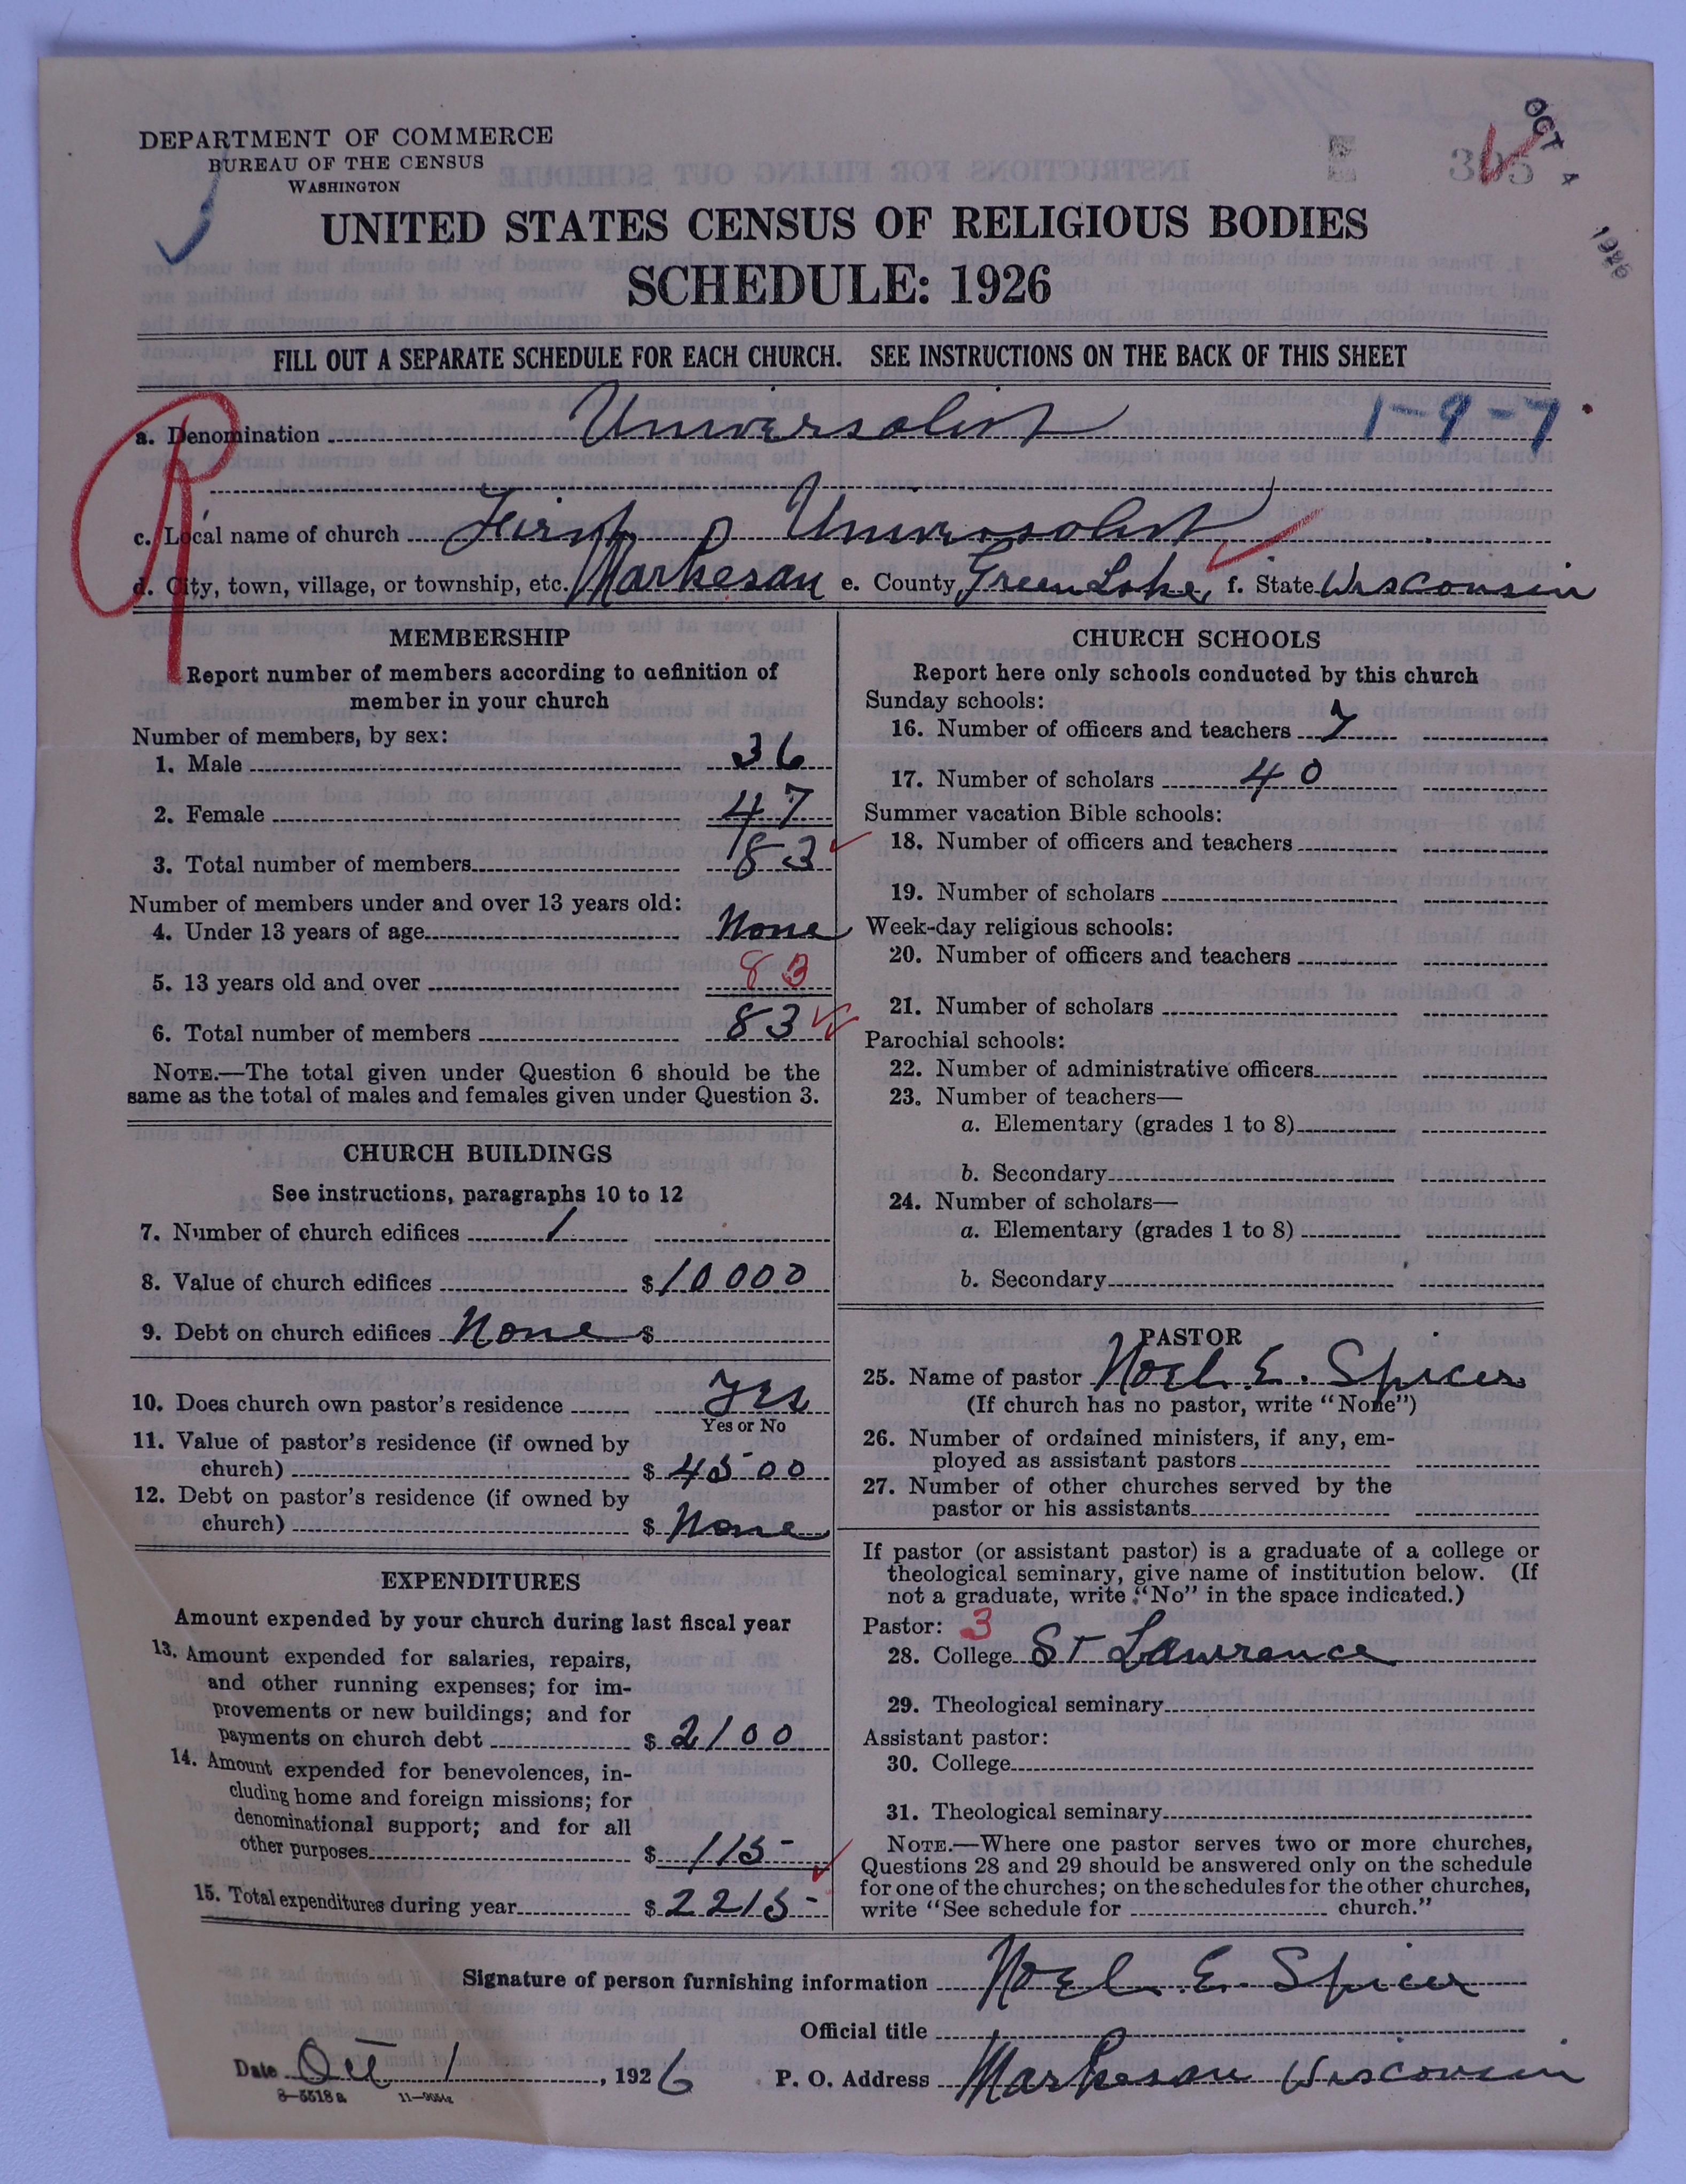 DEPARTMENT OF COMMERCE
BUREAU OF THE CENSUS
WASHINGTON
OCT 4 1926
UNITED STATES CENSUS OF RELIGIOUS BODIES
SCHEDULE: 1926
FILL OUT A SEPARATE SCHEDULE FOR EACH CHURCH. SEE INSTRUCTIONS ON THE BACK OF THIS SHEET
a. Denomination Universalist 1-9-7
c. Local name of church First Universalist
d. City, town, village, or township, etc. Markesan e. County Green Lake f. State Wisconsin
MEMBERSHIP
Report number of members according to definition of
member in your church
Number of members, by sex:
1. Male 36
2. Female 47
3. Total number of members 83
Number of members under and over 13 years old:
4. Under 13 years of age None
5. 13 years old and over 83
6. Total number of members 83
NOTE.—The total given under Question 6 should be the
same as the total of males and females given under Question 3.
CHURCH BUILDINGS
See instructions, paragraphs 10 to 12
7. Number of church edifices 1
8. Value of church edifices $ 10000
9. Debt on church edifices None $
10. Does church own pastor's residence Yes
Yes or No
11. Value of pastor's residence (if owned by
church) $ 4500
12. Debt on pastor's residence (if owned by
church) $ None
EXPENDITURES
Amount expended by your church during last fiscal year
13. Amount expended for salaries, repairs,
and other running expenses; for im-
provements or new buildings; and for
payments on church debt $ 2100
14. Amount expended for benevolences, in-
cluding home and foreign missions; for
denominational support; and for all
other purposes $ 115-
15. Total expenditures during year $ 2215-
CHURCH SCHOOLS
Report here only schools conducted by this church
Sunday schools:
16. Number of officers and teachers 7
17. Number of scholars 40
Summer vacation Bible schools:
18. Number of officers and teachers
19. Number of scholars
Week-day religious schools:
20. Number of officers and teachers
21. Number of scholars
Parochial schools:
22. Number of administrative officers
23. Number of teachers—
a. Elementary (grades 1 to 8)
b. Secondary
24. Number of scholars—
a. Elementary (grades 1 to 8)
b. Secondary
PASTOR
25. Name of pastor Noel E. Spicer
(If church has no pastor, write "None")
26. Number of ordained ministers, if any, em-
ployed as assistant pastors
27. Number of other churches served by the
pastor or his assistants
If pastor (or assistant pastor) is a graduate of a college or
theological seminary, give name of institution below. (If
not a graduate, write "No" in the space indicated.)
Pastor: 3
28. College St Lawrence
29. Theological seminary
Assistant pastor:
30. College
31. Theological seminary
NOTE.—Where one pastor serves two or more churches,
Questions 28 and 29 should be answered only on the schedule
for one of the churches; on the schedules for the other churches,
write "See schedule for church."
Signature of person furnishing information Noel E. Spicer
Official title
Date Oct 1, 1926 P. O. Address Markesan Wisconsin
8-5518a